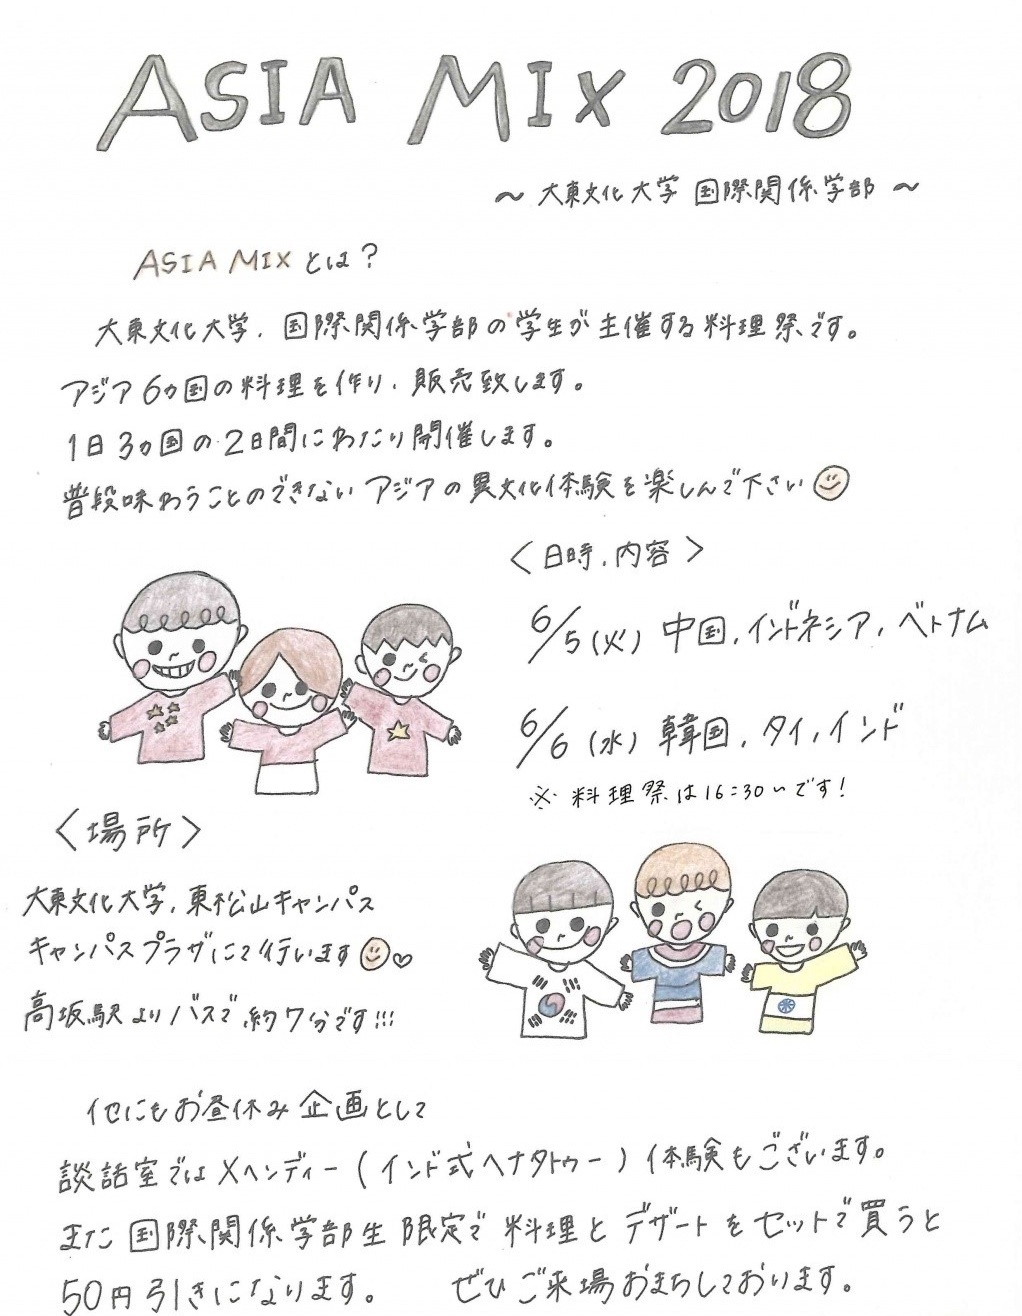 ASIA MIX 2018
～ 大東文化大学 国際関係学部 ～
ASIA MIX とは？
大東文化大学、国際関係学部の学生が主催する料理祭です。
アジア6ヵ国の料理を作り、販売致します。
1日3ヵ国の2日間にわたり開催します。
普段味わうことのできないアジアの異文化体験を楽しんで下さい
〈日時、内容〉
6/5(火) 中国、インドネシア、ベトナム
6/6(水) 韓国、タイ、インド
※料理祭は16:30～です！
〈場所〉
大東文化大学、東松山キャンパス
キャンパスプラザにて行います
高坂駅よりバスで、約7分です!!!
他にもお昼休み企画として
談話室ではメヘンディー(インド式ヘナタトゥー)体験もございます。
また国際関係学部生限定で料理とデザートをセットで買うと
50円引きになります。 ぜひご来場おまちしております。